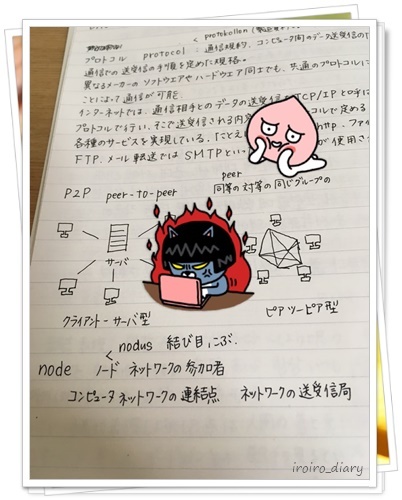 < protokollen
プロトコル protocol : 通信規約、コンピュータ間のデータ送受信の
通信での送受信の手順を定めた規格。
異なるメーカーのソフトウエアやハードウエア同士でも、共通のプロトコルに
ことによって通信が可能
インターネットでは、通信相手とのデータの送受信 TCP/IPと呼ば
プロトコルで行い、そこで送受信される内容 コルで定める
各種のサービスを実現している。たとえ http、ファイ
FTP、メール転送ではSMTPといっ が使用さ
peer
P2P peer-to-peer 同等の 対等の 同じグループの
サーバ
クライアントーサーバ型 ピアツーピア型
< nodus 結び目、こぶ。
node ノード ネットワークの参加者
コンピュータネットワークの連結点 ネットワークの送受信局
iroiro_diary